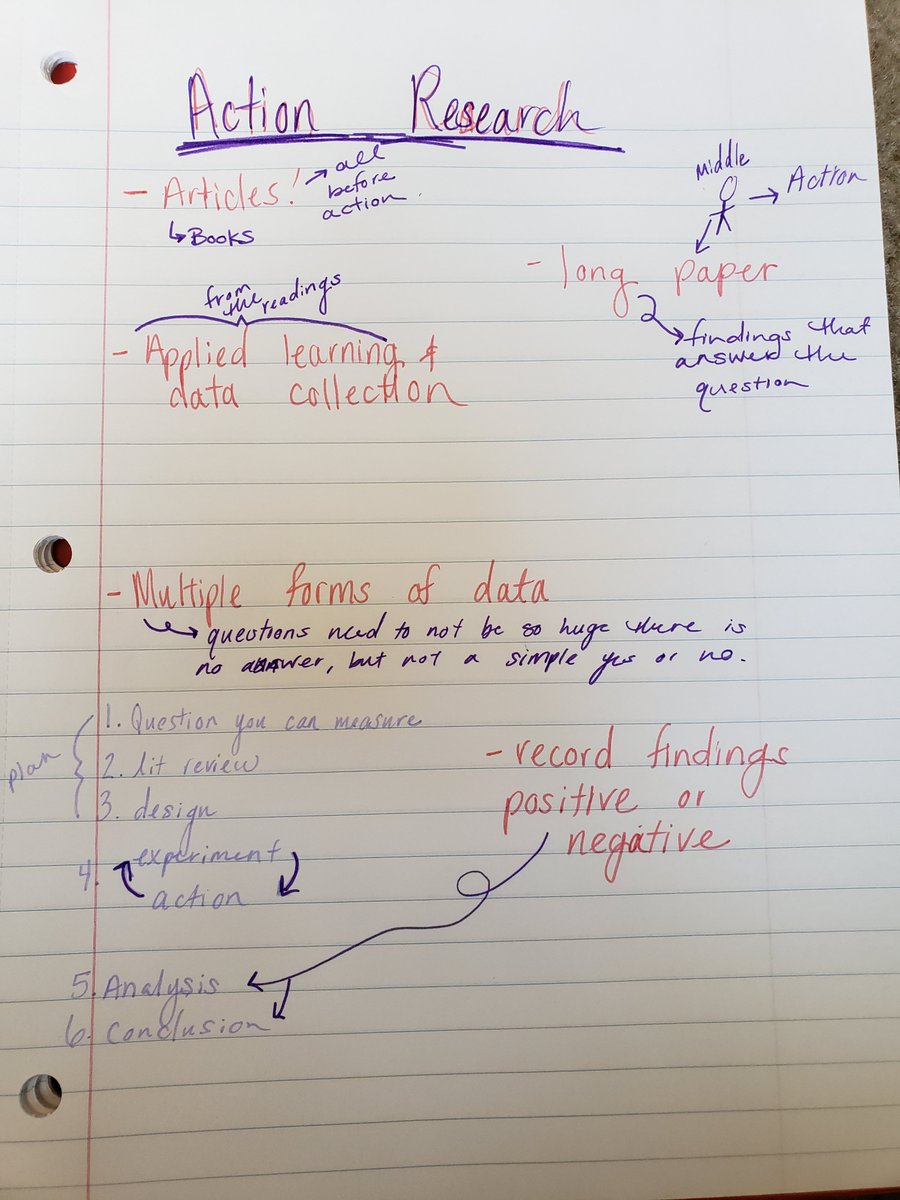 Action Research
- Articles! → all
before
action.
↳ Books
middle
→ Action
- long paper
→ findings that
answer the
question
from the readings
- Applied learning &
data collection
- Multiple forms of data
→ questions need to not be so huge there is
no answer, but not a simple yes or no.
plan
1. Question you can measure
2. lit review
3. design
4. experiment
action
- record findings
positive or
negative
5. Analysis
6. Conclusion